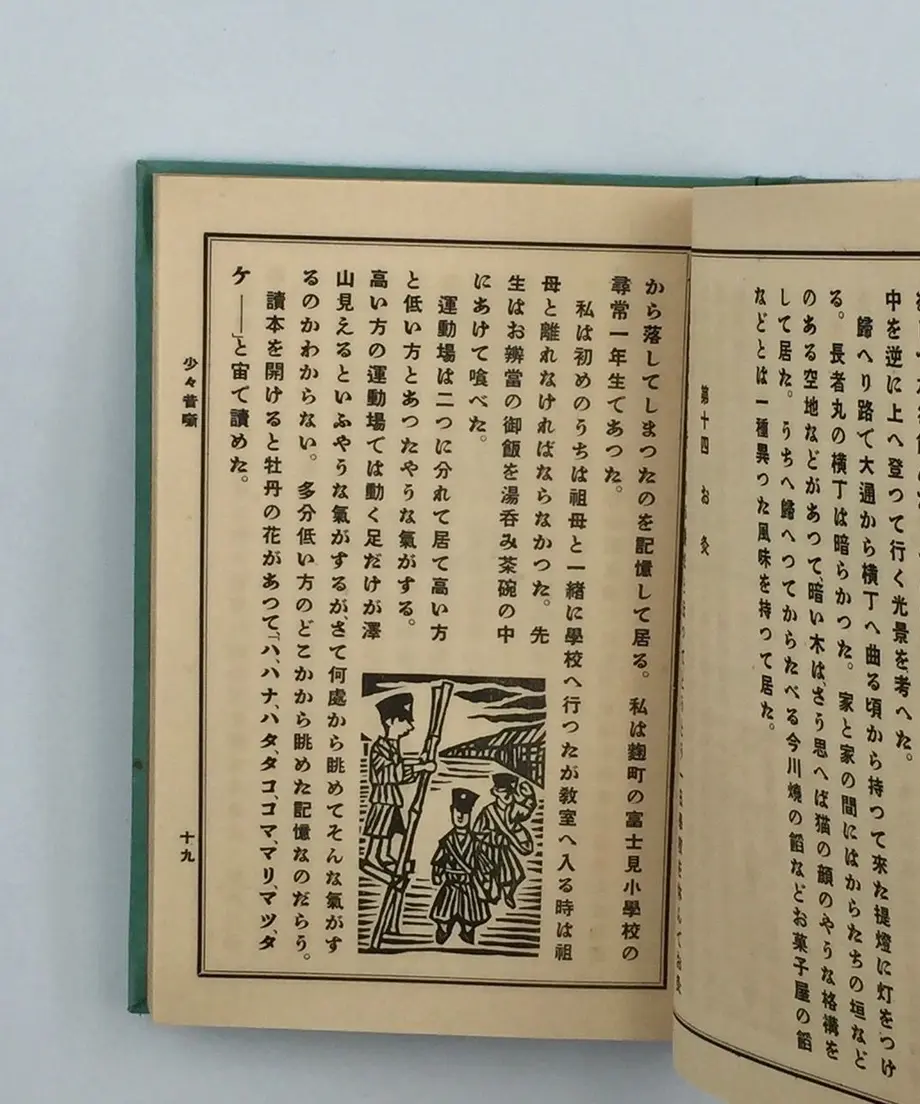 中を逆に上へ登つて行く光景を考へた。
歸へり路で大通から横丁へ曲る頃から持つて來た提燈に灯をつけ
る。長者丸の横丁は暗らかつた。家と家の間にはからたちの垣など
のある空地などがあつて、暗い木は、さう思へば猫の顔のやうな格構を
して居た。うちへ歸へつてからたべる今川燒の餡などお菓子屋の餡
などとは一種異つた風味を持つて居た。
第十四 お灸
から落してしまつたのを記憶して居る。私は麹町の富士見小學校の
尋常一年生てあつた。
私は初めのうちは祖母と一緒に學校へ行つたが敎室へ入る時は祖
母と離れなければならなかつた。先
生はお辨當の御飯を湯呑み茶碗の中
にあけて喰べた。
運動場は二つに分れて居て高い方
と低い方とあつたやうな氣がする。
高い方の運動場ては動く足だけが澤
山見えるといふやうな氣がするが、さて何處から眺めてそんな氣がす
るのかわからない。多分低い方のどこかから眺めた記憶なのだらう。
讀本を開けると牡丹の花があつて、「ハ、ハナ、ハタ、タコ、コマ、マリ、マツ、タ
ケ——」と宙て讀めた。
少々昔噺
十九